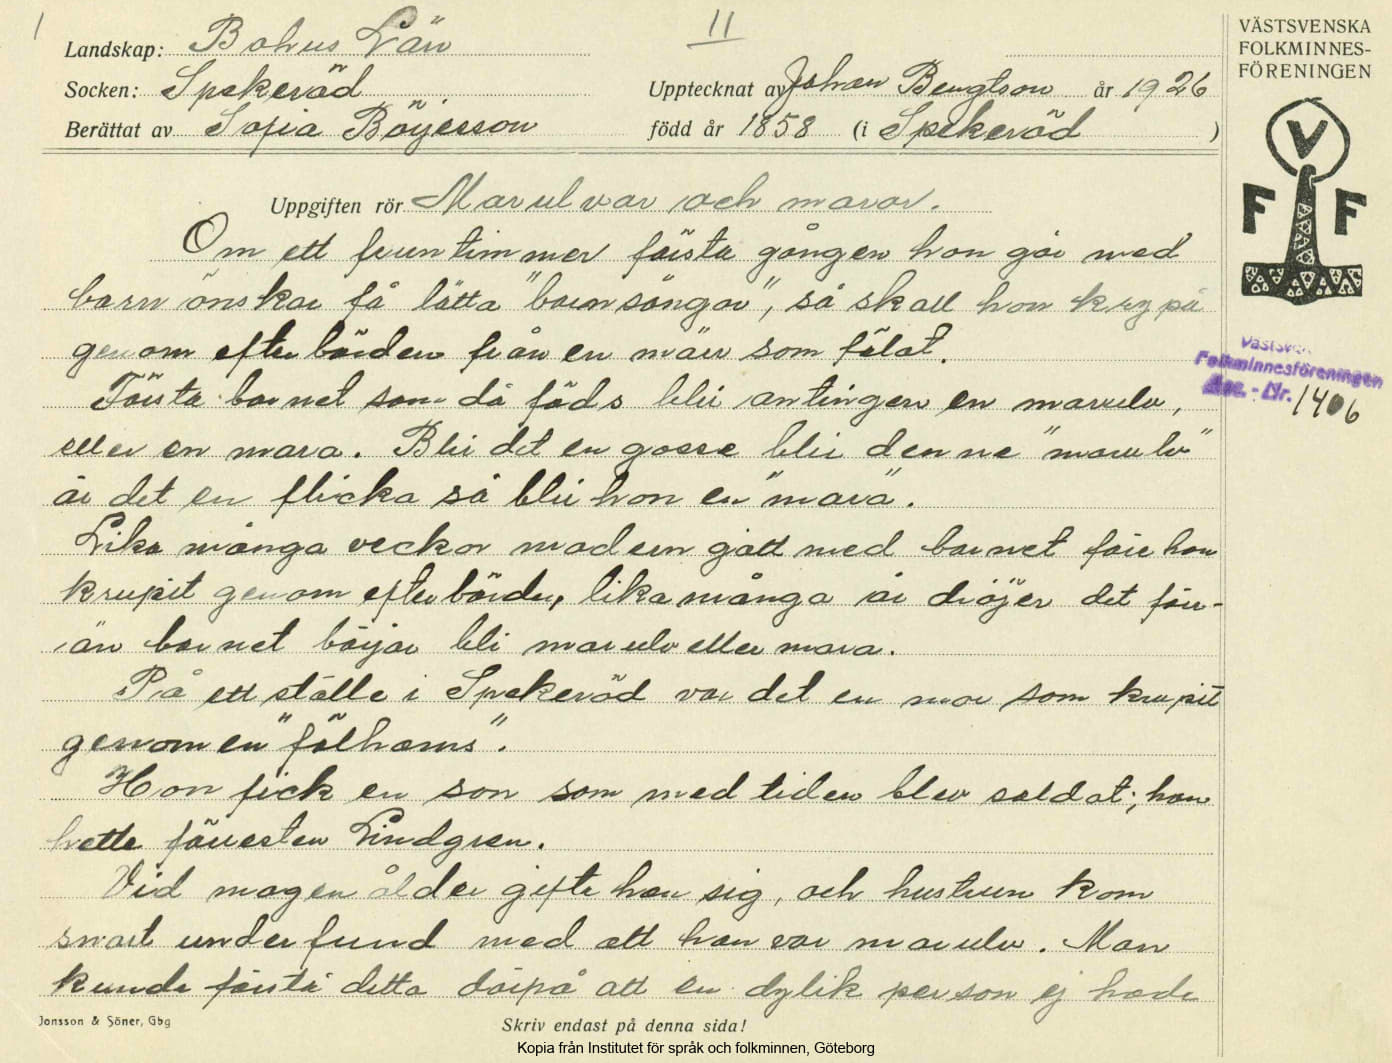 11
Landskap: Bohus Län
VÄSTSVENSKA
FOLKMINNES-
FÖRENINGEN
Socken: Spekeröd Upptecknat av Johan Bengtson år 1926
Berättat av Sofia Böyesson född år 1858 (i Spekeröd )
V
F F
Uppgiften rör Marulvar och maror.
Om ett fruntimmer första gången hon går med
barn önskar få lätta "barnsängar", så skall hon krypa
genom efterbörden från en märr som fölat.
Första barnet som då föds blir antingen en marulv,
eller en mara. Blir det en gosse blir denne "marulv"
är det en flicka så blir hon en "mara".
Lika många veckor modern gått med barnet förr hon
krupit genom efterbörden, lika många år dröjer det förr-
än barnet börjar bli marulv eller mara.
På ett ställe i Spekeröd var det en mor som krupit
genom en "fölhams".
Hon fick en son som med tiden blev soldat; han
hette förresten Lindgren.
Vid mogen ålder gifte han sig, och hustrun kom
snart underfund med att han var marulv. Man
kunde förstå detta därpå att en dylik person ej hade
Västsven
Folkminnesföreningen
Acc.-Nr. 1406
Jonsson & Söner, Gbg
Skriv endast på denna sida!
Kopia från Institutet för språk och folkminnen, Göteborg